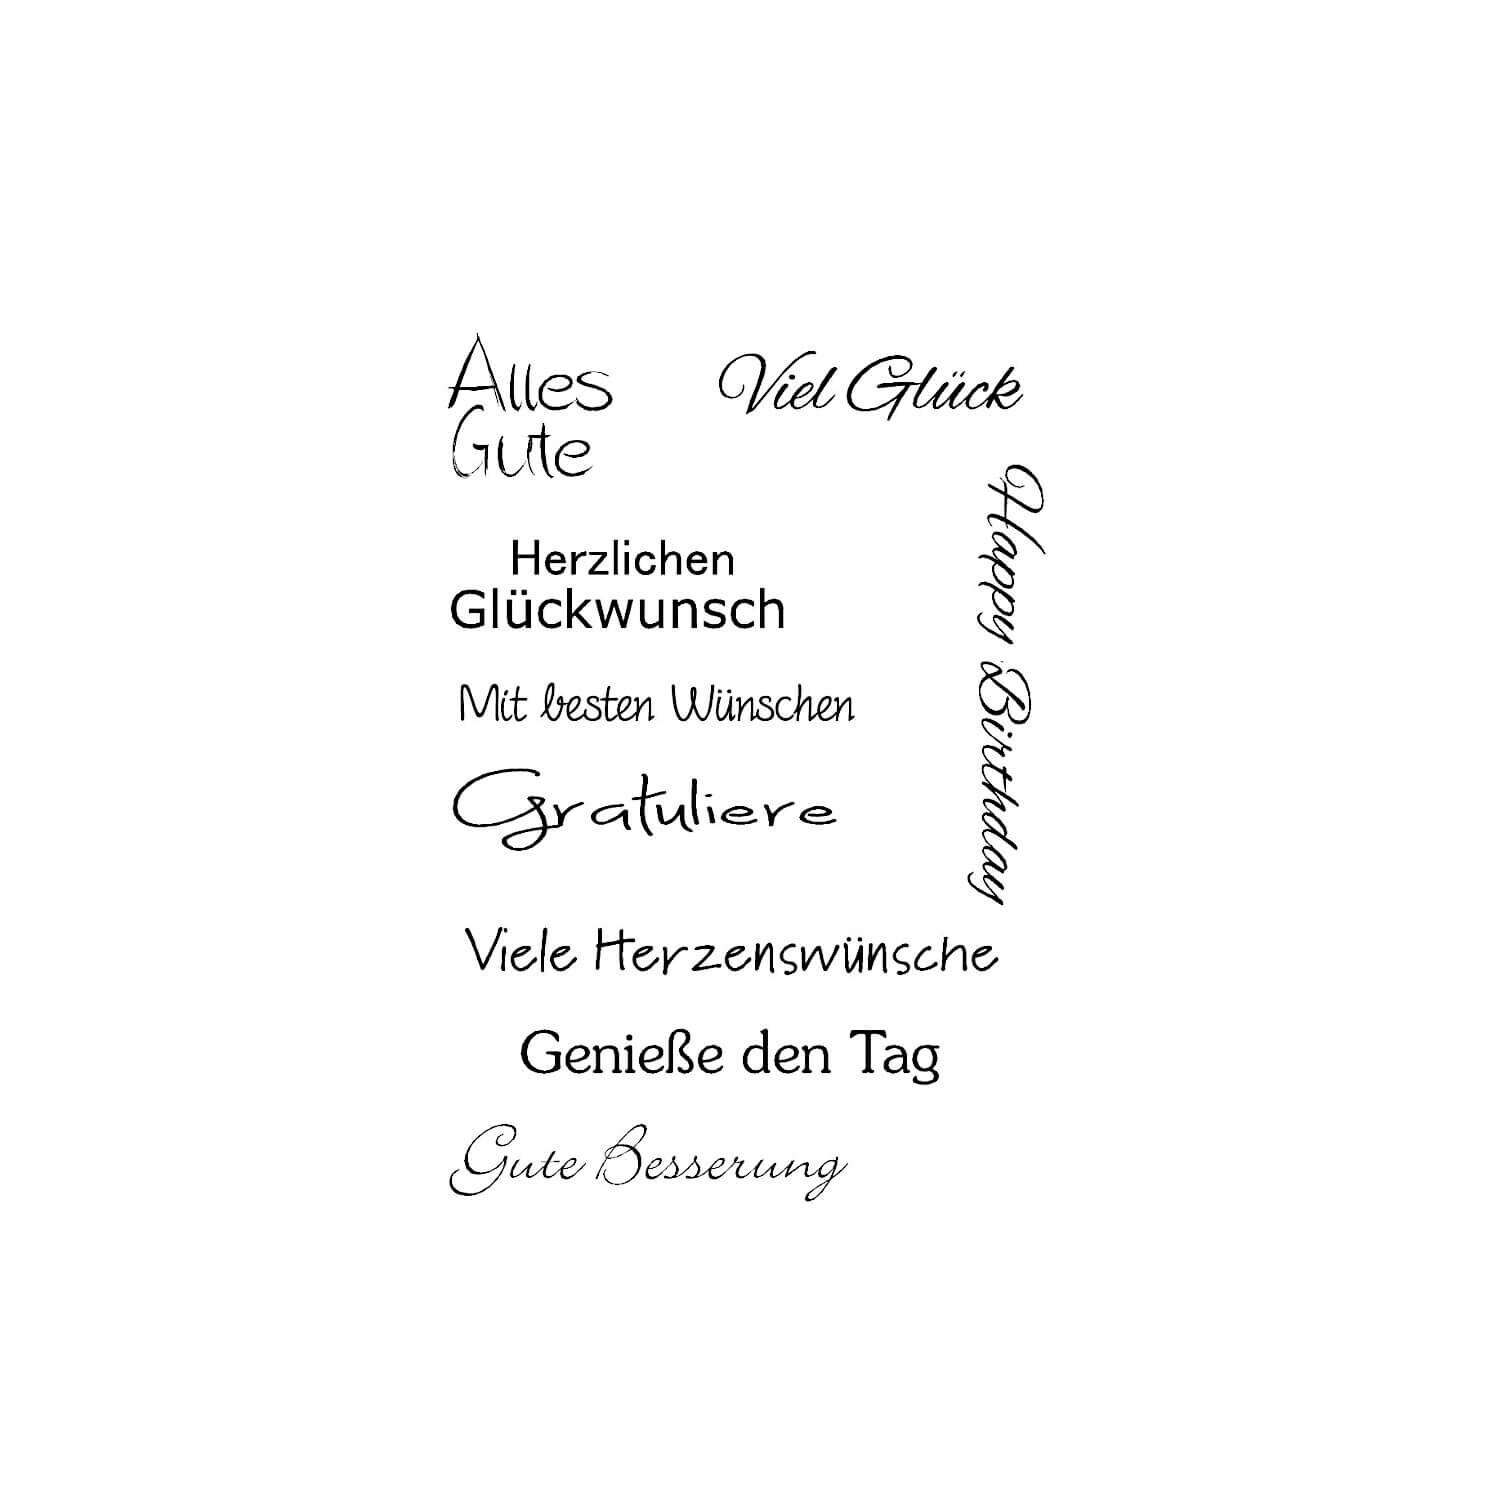 Alles
Gute
Viel Glück
Happy Birthday
Herzlichen
Glückwunsch
Mit besten Wünschen
Gratuliere
Viele Herzenswünsche
Genieße den Tag
Gute Besserung